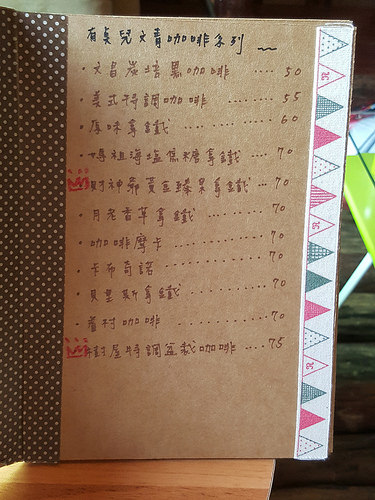 有真兒文青咖啡系列 ~
·文昌炭培黑咖啡 ···· 50
·美式特調咖啡 ···· 55
·原味拿鐵 ········· 60
·媽祖海塩焦糖拿鐵 ···· 70
財神爺黃金臻果拿鐵 ··· 70
·月老香草拿鐵 ········ 70
·咖啡摩卡 ············ 70
·卡布奇諾 ············ 70
·貝里斯拿鐵 ·········· 70
·眷村咖啡 ··········· 70
討屋特調盆栽咖啡 ···· 75